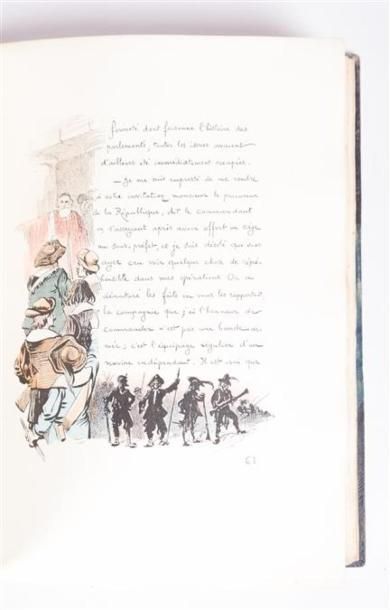 fermeté dont foisonne l'histoire des
parlements, toutes les issues avaient
d'ailleurs été immédiatement occupées.
— Je me suis empressé de me rendre
à votre invitation, monsieur le procureur
de la République, dit le commandant
en s'asseyant après avoir offert un siège
au sous-préfet, et je suis désolé que vous
ayez cru voir quelque chose de répré-
hensible dans mes opérations. On a
dénaturé les faits en vous les rapportant,
la compagnie que j'ai l'honneur de
commander n'est pas une bande
c'est l'équipage régulier d'un
navire indépendant. Il est vrai que
61